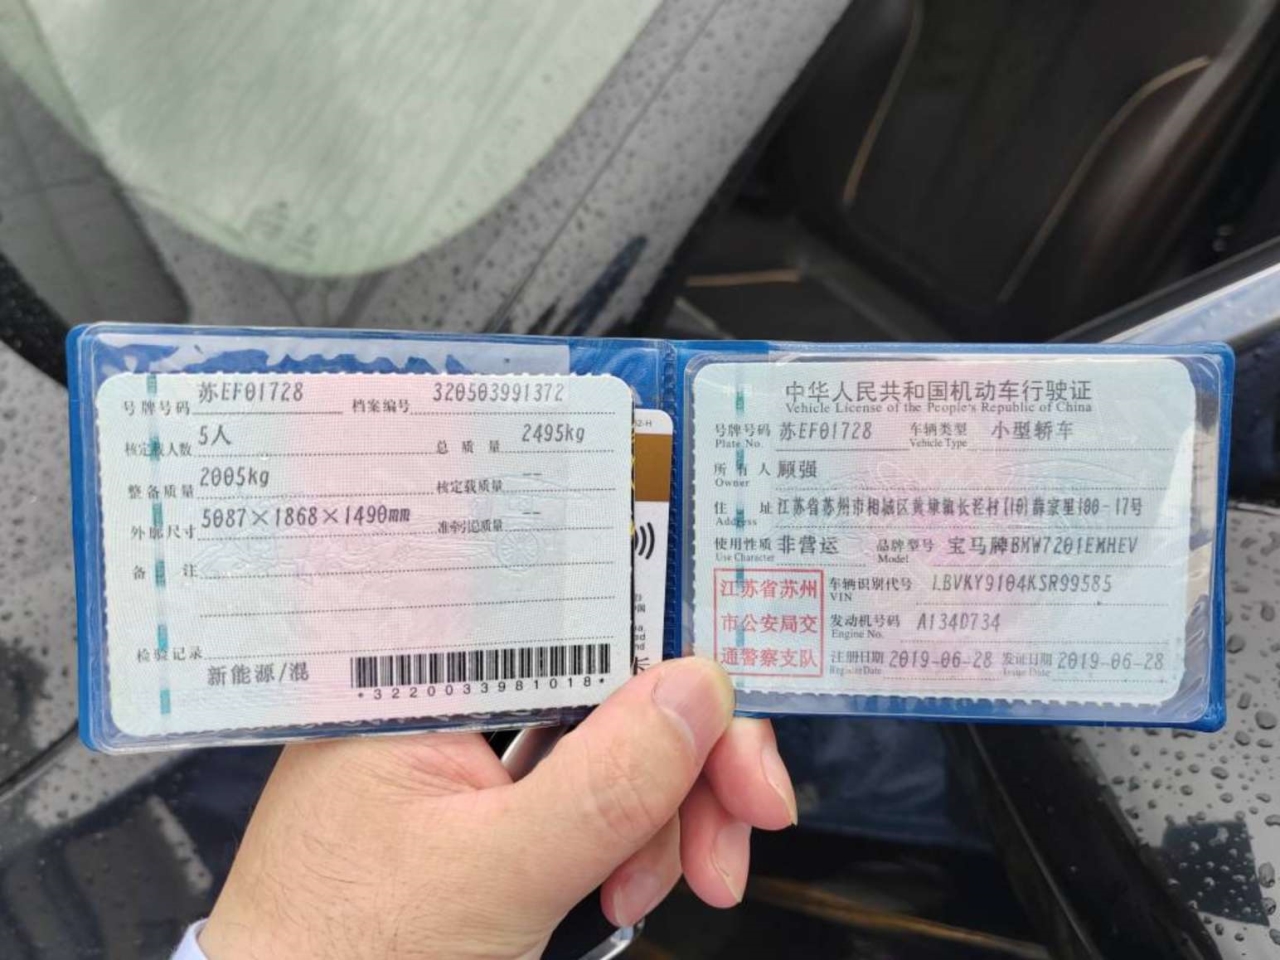 号牌号码 苏EF01728 档案编号 320503991372
核定载人数 5人 总质量 2495kg
整备质量 2005kg 核定载质量 --
外廓尺寸 5087×1868×1490mm 准牵引总质量 --
备注
检验记录
新能源/混
*3220033981018*
中华人民共和国机动车行驶证
Vehicle License of the People's Republic of China
号牌号码 苏EF01728 车辆类型 小型轿车
Plate No. Vehicle Type
所有人 顾强
Owner
住址 江苏省苏州市相城区黄埭镇长泾村(10)薛家里100-17号
Address
使用性质 非营运 品牌型号 宝马牌BMW7201EMHEV
Use Character Model
江苏省苏州
市公安局交
通警察支队
车辆识别代号 LBVKY9104KSR99585
VIN
发动机号码 A134D734
Engine No.
注册日期 2019-06-28 发证日期 2019-06-28
Register Date Issue Date
卡